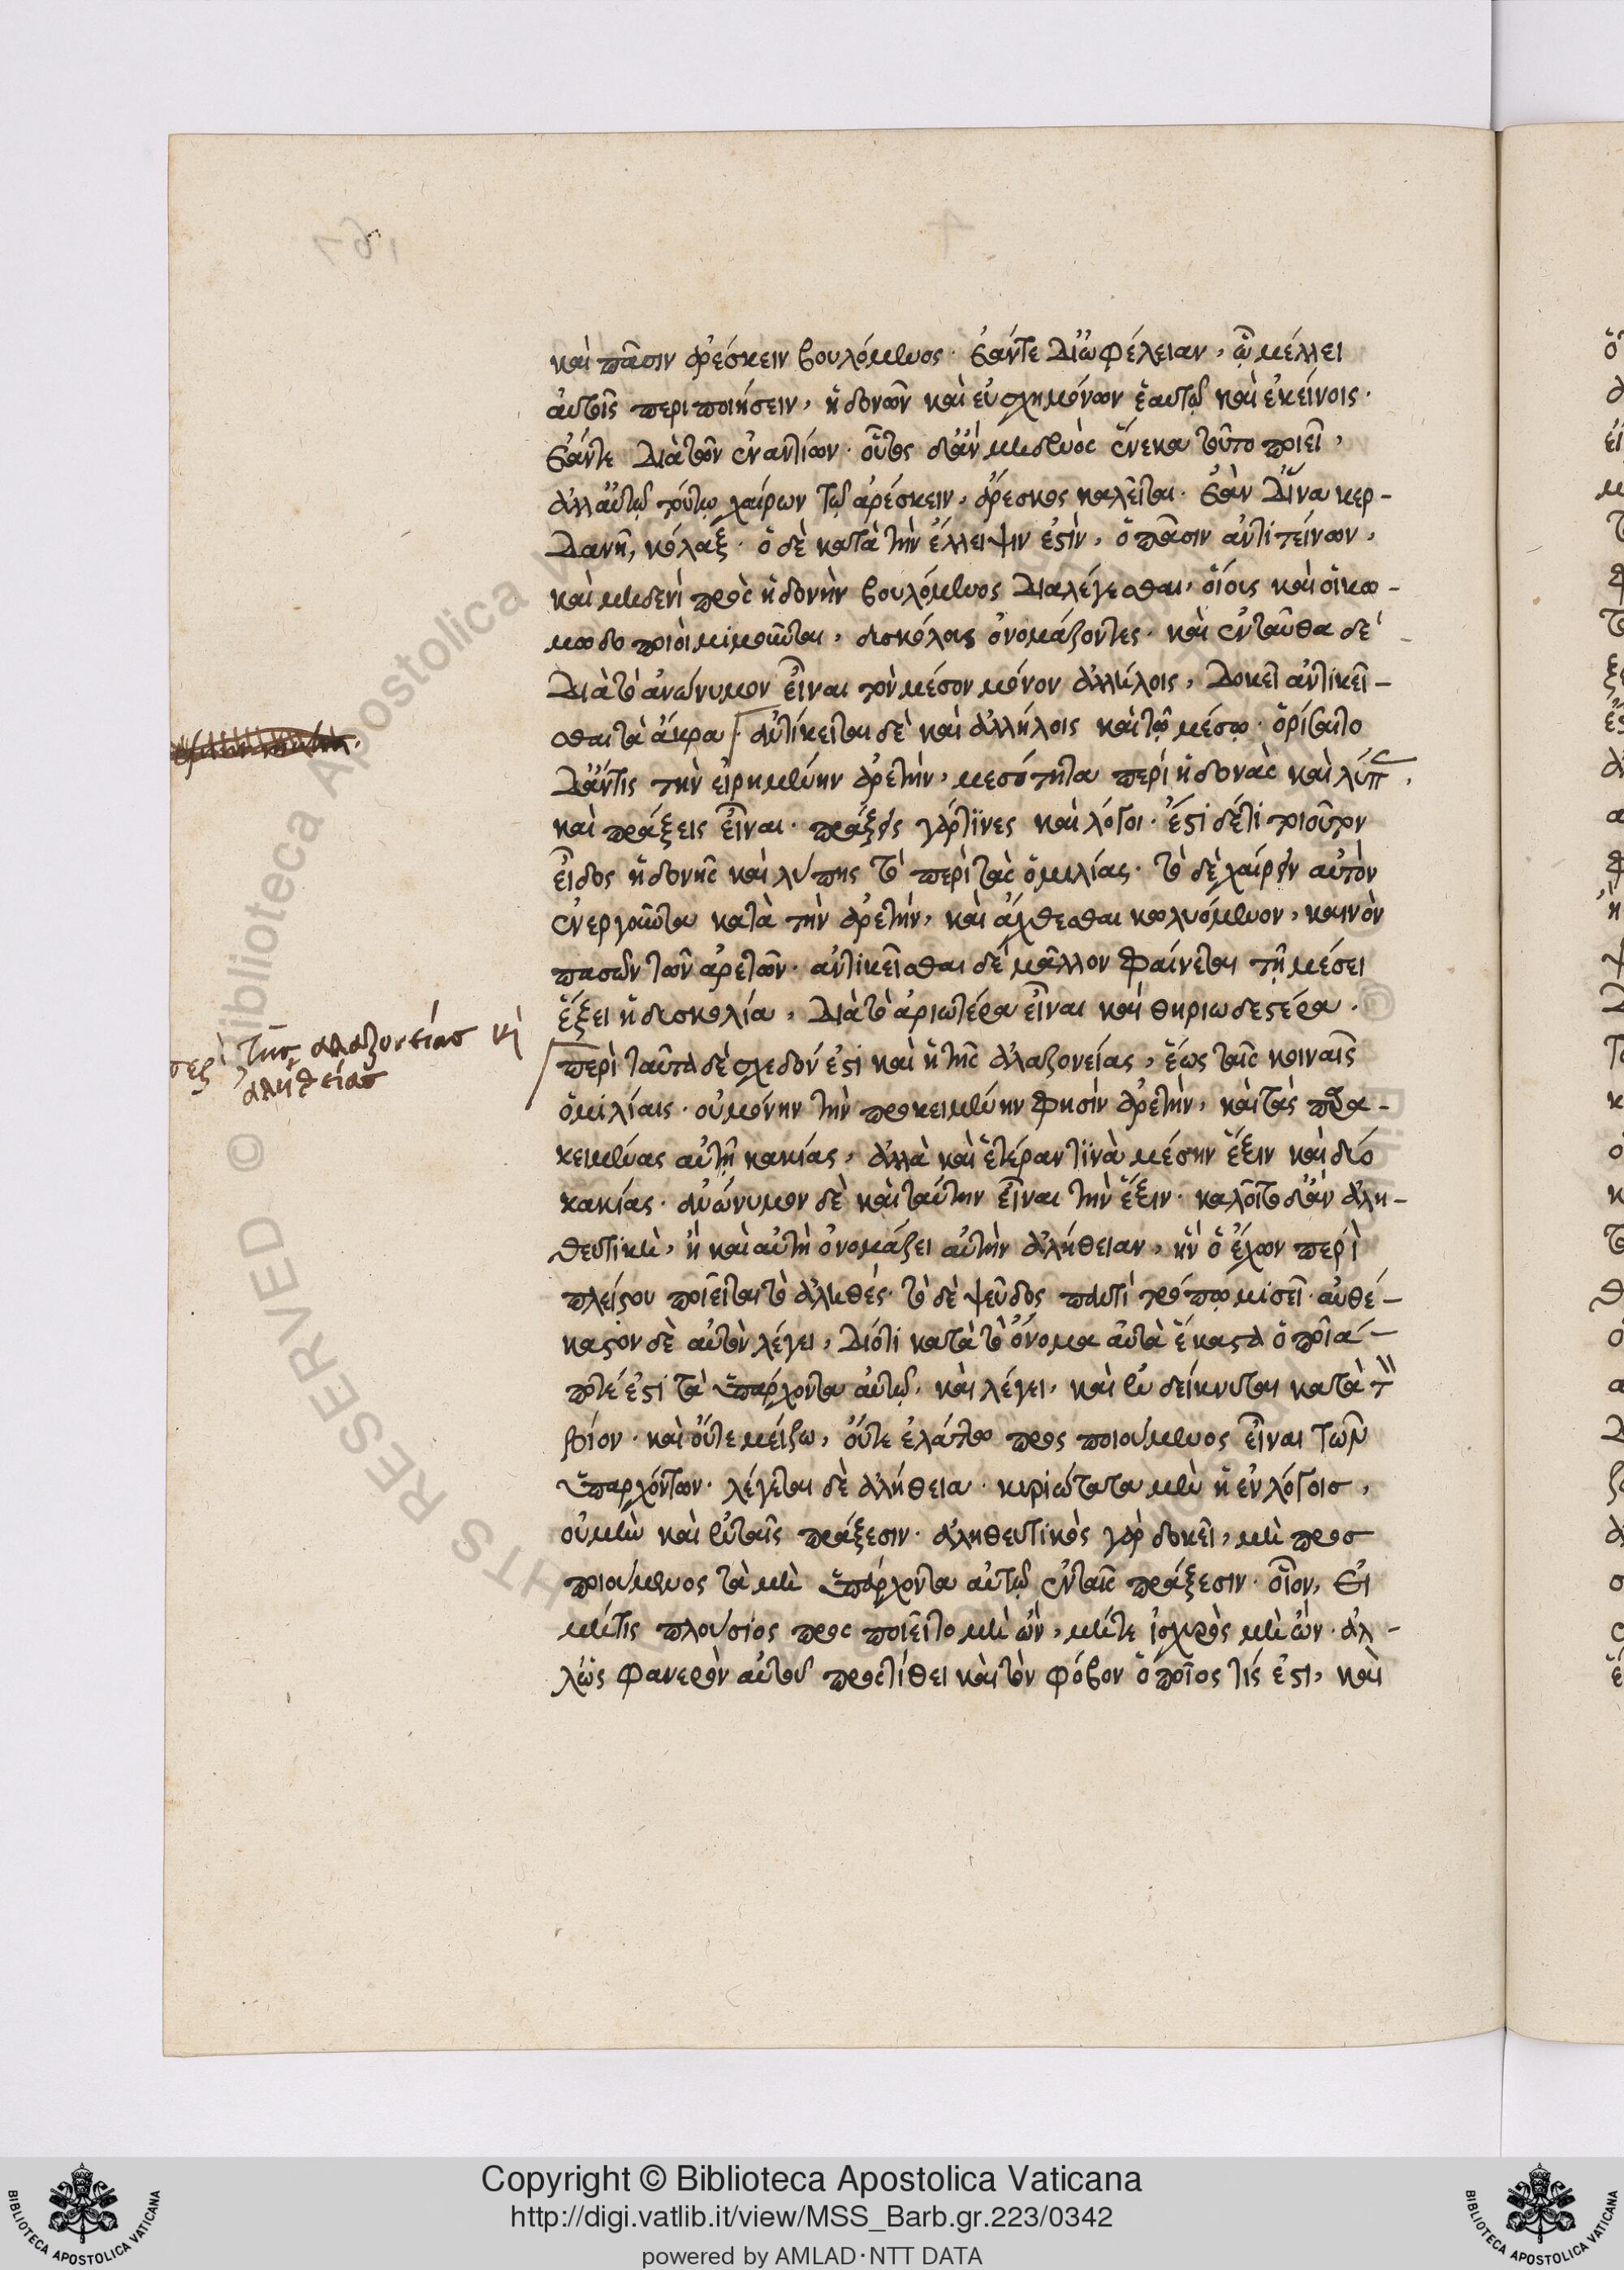 καὶ πᾶσιν ἀρέσκειν βουλόμενος· ἐάντε δι' ὠφέλειαν, ᾧ μέλλει
αὐτοῖς περιποιήσειν, ἡδονῶν καὶ εὐσχημόνων ἑαυτῷ καὶ ἐκείνοις·
ἐάντε διὰ τῶν ἐναντίων· οὗτος δ' ἂν μηδενὸς ἕνεκα τοῦτο ποιεῖ,
ἀλλ' αὐτῷ τούτῳ χαίρων τῷ ἀρέσκειν, ἄρεσκος καλεῖται· ἐὰν δ' ἵνα κερ-
δανῇ, κόλαξ· ὁ δὲ κατὰ τὴν ἔλλειψιν ἐστὶν, ὁ πᾶσιν ἀντιτείνων,
καὶ μηδενὶ πρὸς ἡδονὴν βουλόμενος διαλέγεσθαι, οἵους καὶ οἱ κω-
μωδοποιοὶ μιμοῦνται, δισκόλους ὀνομάζοντες· καὶ ἐνταῦθα δὲ
διὰ τὸ ἀνώνυμον εἶναι τὸν μέσον μόνον ἀλλήλοις, δοκεῖ ἀντικεῖ-
σθαι τὰ ἄκρα· ἀντίκειται δὲ καὶ ἀλλήλοις καὶ τῷ μέσῳ· ὁρίσαιτο
δ' ἄν τις τὴν εἰρημένην ἀρετὴν, μεσότητα περὶ ἡδονὰς καὶ λύπας,
καὶ πράξεις εἶναι· πράξεις γάρ τινες καὶ λόγοι· ἔστι δέ τι τοιοῦτον
εἶδος ἡδονῆς καὶ λύπης τὸ περὶ τὰς ὁμιλίας· τὸ δὲ χαίρειν αὐτὸν
ἐνεργοῦντα κατὰ τὴν ἀρετὴν, καὶ ἄχθεσθαι κωλυόμενον, κοινὸν
πασῶν τῶν ἀρετῶν· ἀντικεῖσθαι δὲ μᾶλλον φαίνεται τῇ μέσει
ἕξει ἡ δισκολία, διὰ τὸ ἀριωτέρα εἶναι καὶ θηριωδεστέρα·
περὶ ταῦτα δὲ σχεδόν ἐστι καὶ ἡ τῆς ἀλαζονείας, ἕως ταῖς κοιναῖς
ὁμιλίαις· οὐ μόνην τὴν προκειμένην φησὶν ἀρετὴν, καὶ τὰς παρα-
κειμένας αὐτῇ κακίας, ἀλλὰ καὶ ἑτέραν τινὰ μέσην ἕξιν καὶ δύο
κακίας· ἀνώνυμον δὲ καὶ ταύτην εἶναι τὴν ἕξιν· καλοῖτο δ' ἂν ἀλη-
θευτικὴ, ἢ καὶ αὐτὴ ὀνομάζει αὐτὴν ἀλήθειαν, ἣν ὁ ἔχων περὶ
πλείστου ποιεῖται τὸ ἀληθές· τὸ δὲ ψεῦδος παντὶ τρόπῳ μισεῖ· αὐθέ-
καστον δὲ αὐτὸν λέγει, διότι κατὰ τὸ ὄνομα αὐτὰ ἕκαστα ὁποῖά
ποτέ ἐστι τὰ ὑπάρχοντα αὐτῷ, καὶ λέγει, καὶ ἐνδείκνυται κατὰ τὸν
βίον· καὶ οὔτε μείζω, οὔτε ἐλάττω προσποιούμενος εἶναι τῶν
ὑπαρχόντων· λέγεται δὲ ἀλήθεια· κυριώτατα μὲν ἡ ἐν λόγοις,
οὐ μὴν καὶ ἐν ταῖς πράξεσιν· ἀληθευτικὸς γὰρ δοκεῖ, μὴ προσ
ποιούμενος τὰ μὴ ὑπάρχοντα αὐτῷ ἐν ταῖς πράξεσιν· οἷον, εἰ
μήτις πλούσιος προσποιεῖτο μὴ ὢν, μήτε ἰσχυρὸς μὴ ὤν· ἀλ-
λ' ὡς φανερὸν αὐτοῦ προστίθει καὶ τὸν φόβον ὁποῖος τίς ἐστι, καὶ
περὶ τῆς ἀλαζονείας κὶ
ἀληθείας
Copyright © Biblioteca Apostolica Vaticana
http://digi.vatlib.it/view/MSS_Barb.gr.223/0342
powered by AMLAD·NTT DATA
BIBLIOTECA APOSTOLICA VATICANA
BIBLIOTECA APOSTOLICA VATICANA